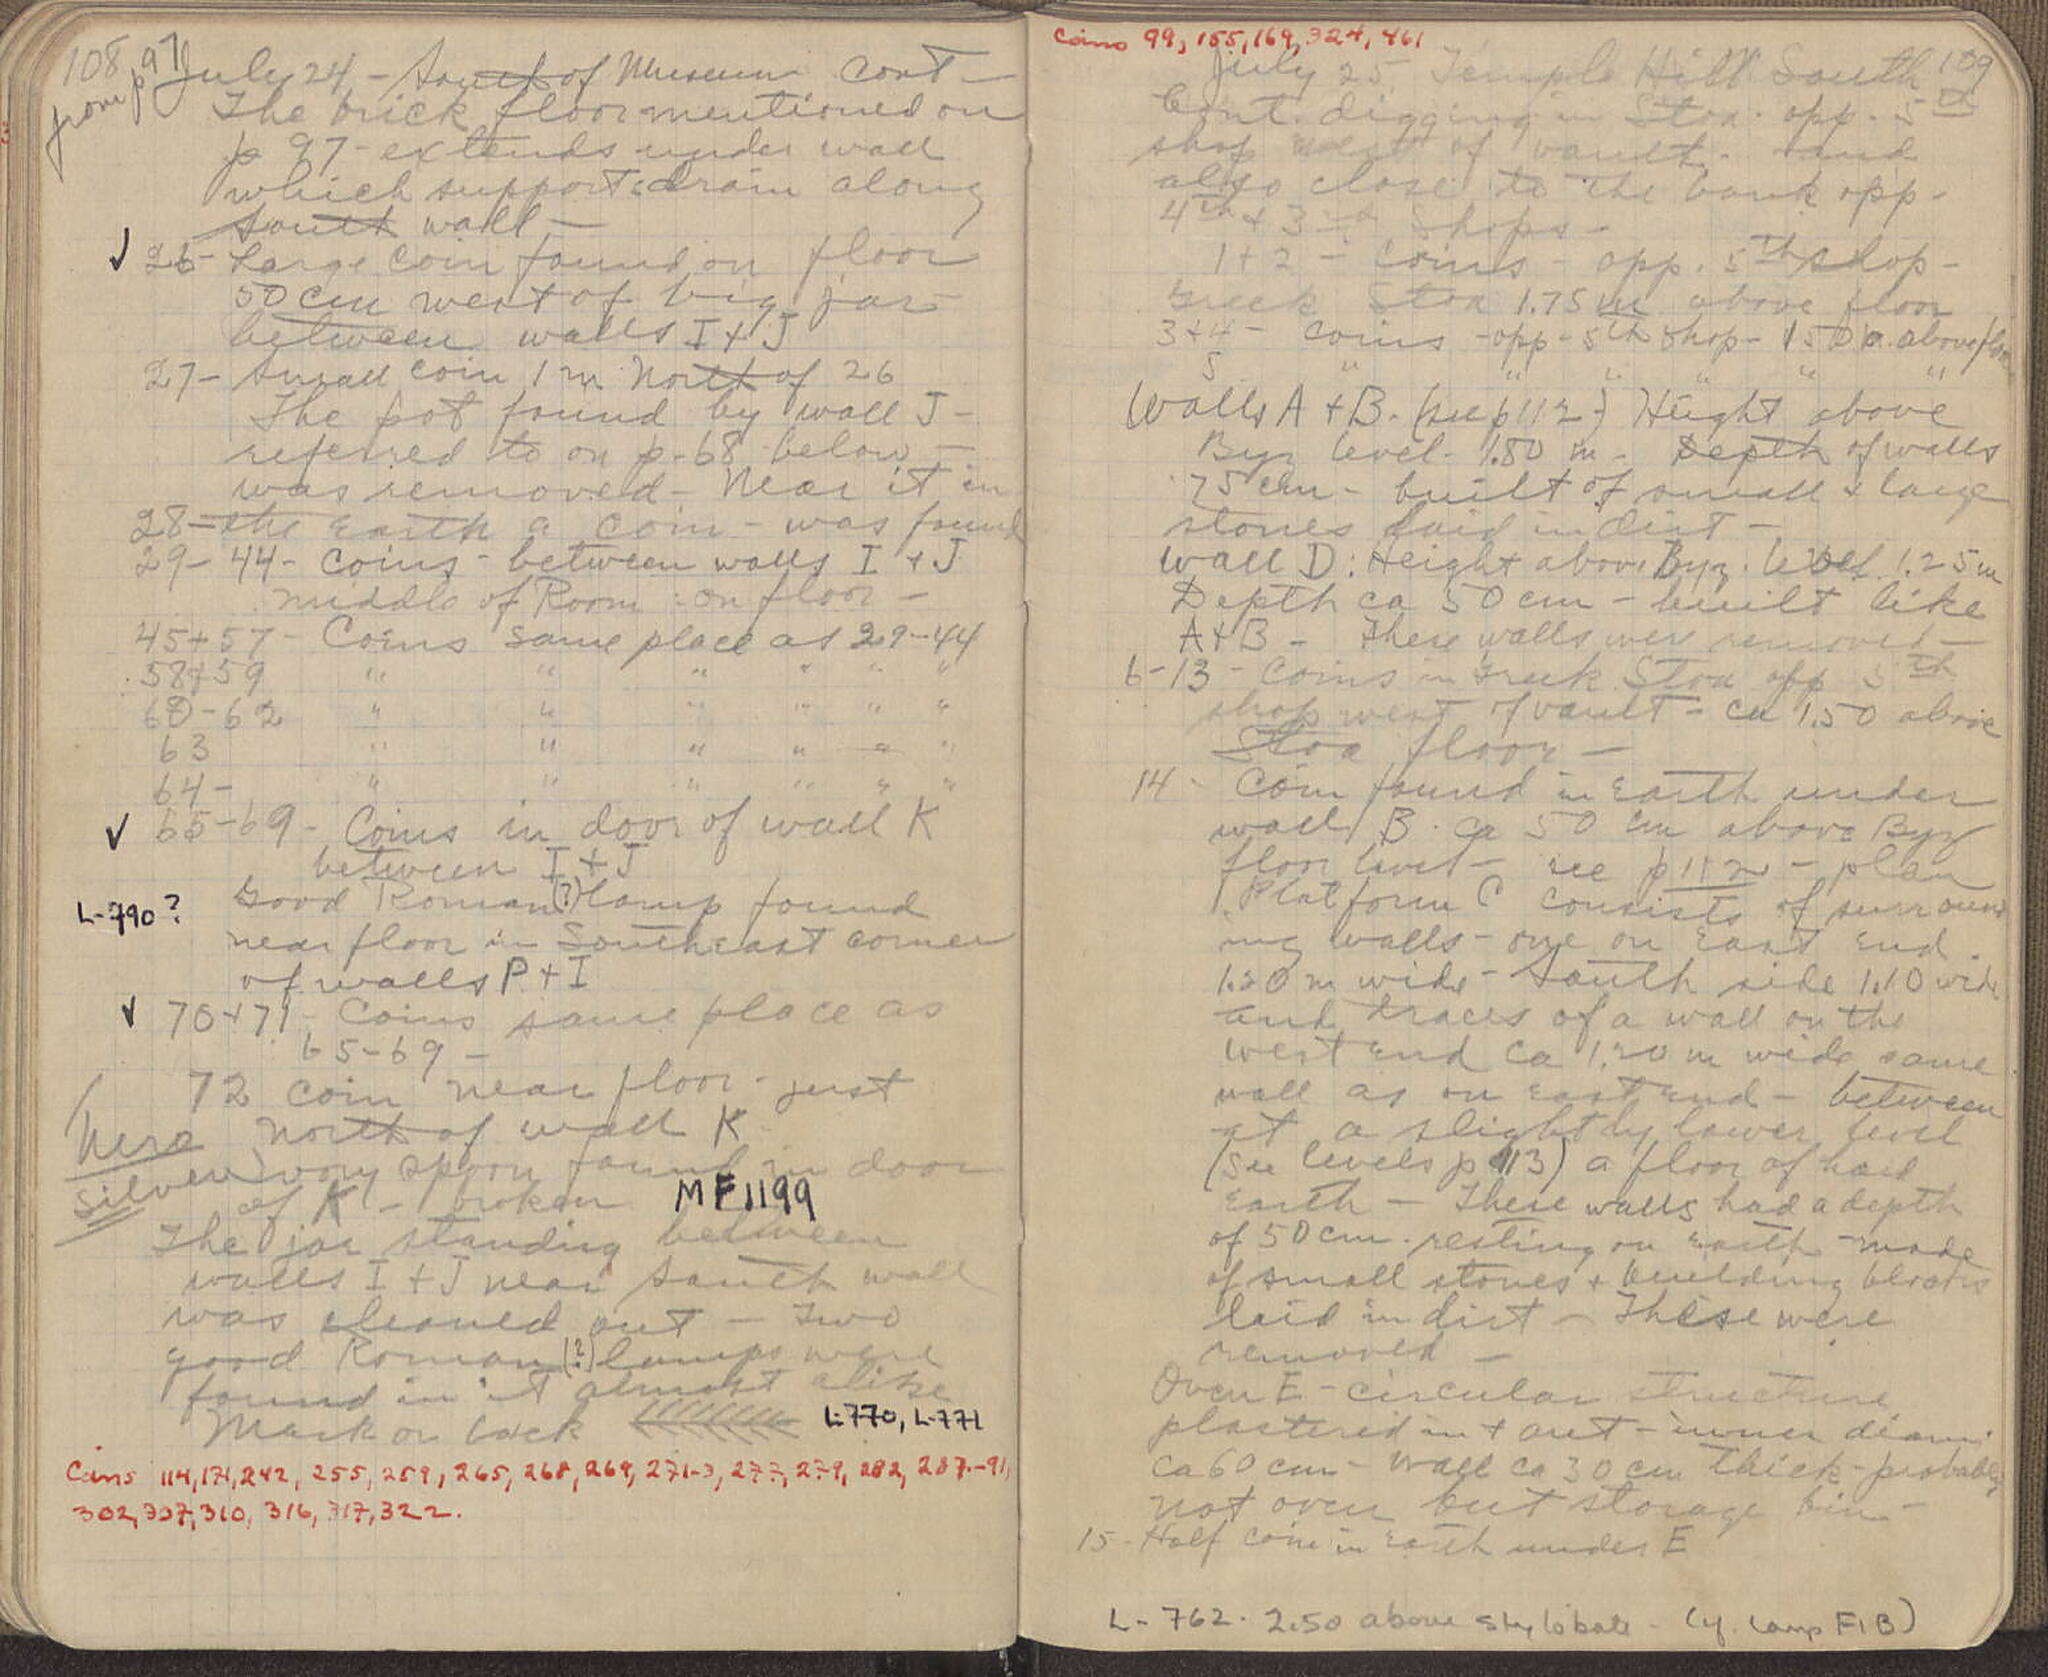 108
from p 97
July 24 - South of Museum Cont -
The brick floor mentioned on
p 97 - extends under wall
which supports drain along
south wall -
✓ 26 - Large coin found on floor
50 cm west of big jar
between walls I + J
27 - Small coin 1 m North of 26
The pot found by wall J -
referred to on p. 68 below -
was removed - Near it in
28 - the earth a coin - was found
29 - 44 - Coins - between walls I + J
middle of Room : on floor -
45 + 57 - Coins same place as 29-44
58 + 59 " " " " " "
60 - 62 " " " " " "
63 " " " " " "
64 - " " " " " "
✓ 65 - 69 - Coins in door of wall K
between I + J
L-790? Good Roman (?) lamp found
near floor in Southeast corner
of walls P + I
✓ 70 + 71 - Coins same place as
65 - 69 -
72 coin near floor - just
north of wall K
silver ivory spoon found in door
of K - broken MF 1199
The jar standing between
walls I + J near south wall
was cleaned out - Two
good Roman (?) lamps were
found in it almost alike
Mark on back L-770, L-771
Coins 114, 171, 242, 255, 259, 265, 268, 269, 271-3, 277, 279, 282, 287-91,
302, 307, 310, 316, 317, 322.
Coins 99, 155, 169, 324, 461
109
July 25 Temple Hill South
Cont. digging in Stoa - opp. 5th
shop west of vault - and
also close to the bank opp -
4th + 3rd Shops -
1 + 2 - Coins - opp. 5th shop -
Greek Stoa 1.75 m above floor
3 + 4 - coins - opp - 5th shop - 1.50 m. above floor
5 " " " " " "
Walls A + B - (see p 112) Height above
Byz level - 1.80 m - Depth of walls
75 cm - built of small + large
stones laid in dirt -
Wall D : Height above Byz. level 1.25 m
Depth ca 50 cm - built like
A + B - These walls were removed -
6 - 13 - Coins in Greek Stoa opp 5th
shop west of vault - ca 1.50 above
Stoa floor -
14 - Coin found in earth under
wall B - ca 50 cm above Byz
floor level - see p 112 - plan
Platform C consists of surround
ing walls - one on East end
1.20 m wide - South side 1.10 wide
and traces of a wall on the
west end ca 1.20 m wide same
wall as on east end - between
at a slightly lower level
(see levels p 113) a floor of hard
earth - These walls had a depth
of 50 cm - resting on earth - made
of small stones + building blocks
laid in dirt - These were
removed -
Oven E - circular structure
plastered in + out - inner diam.
ca 60 cm - wall ca 30 cm thick - probably
not oven but storage bin -
15 - Half coin in earth under E
L - 762 - 2.50 above stylobate - (cf. lamp F1B)